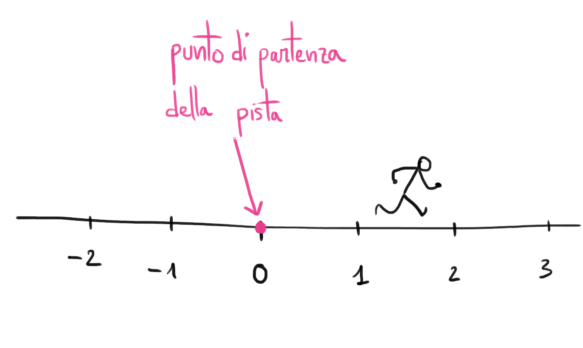 punto di partenza
della pista
-2 -1 0 1 2 3